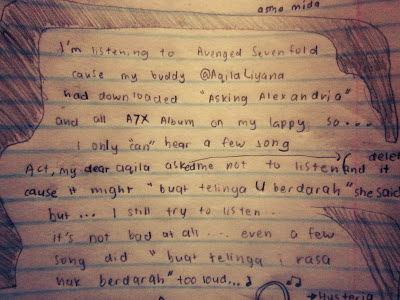 asha mida
I'm listening to Avenged Sevenfold
cause my buddy @AqilaLiyana
had downloaded "Asking Alexandria"
and all A7X Album on my lappy so...
I only "can" hear a few song
delet
Act, my dear aqila asked me not to listen and it
cause it might "buat telinga U berdarah" she said
but... I still try to listen..
it's not bad at all.... even a few
song did "buat telinga i rasa
nak berdarah" too loud...♪ ♫
→Hysteria